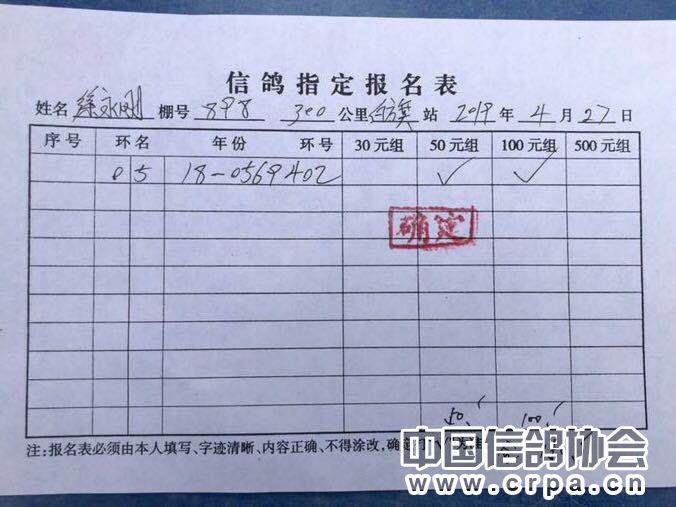 信鸽指定报名表
姓名 徐永刚 棚号 898 300 公里 白旗 站 2019 年 4 月 27 日
序号 环名 年份 环号 30元组 50元组 100元组 500元组
05 18-0569402 ✓ ✓
确定
50 100
注:报名表必须由本人填写、字迹清晰、内容正确、不得涂改,确
中国信鸽协会
www.crpa.cn